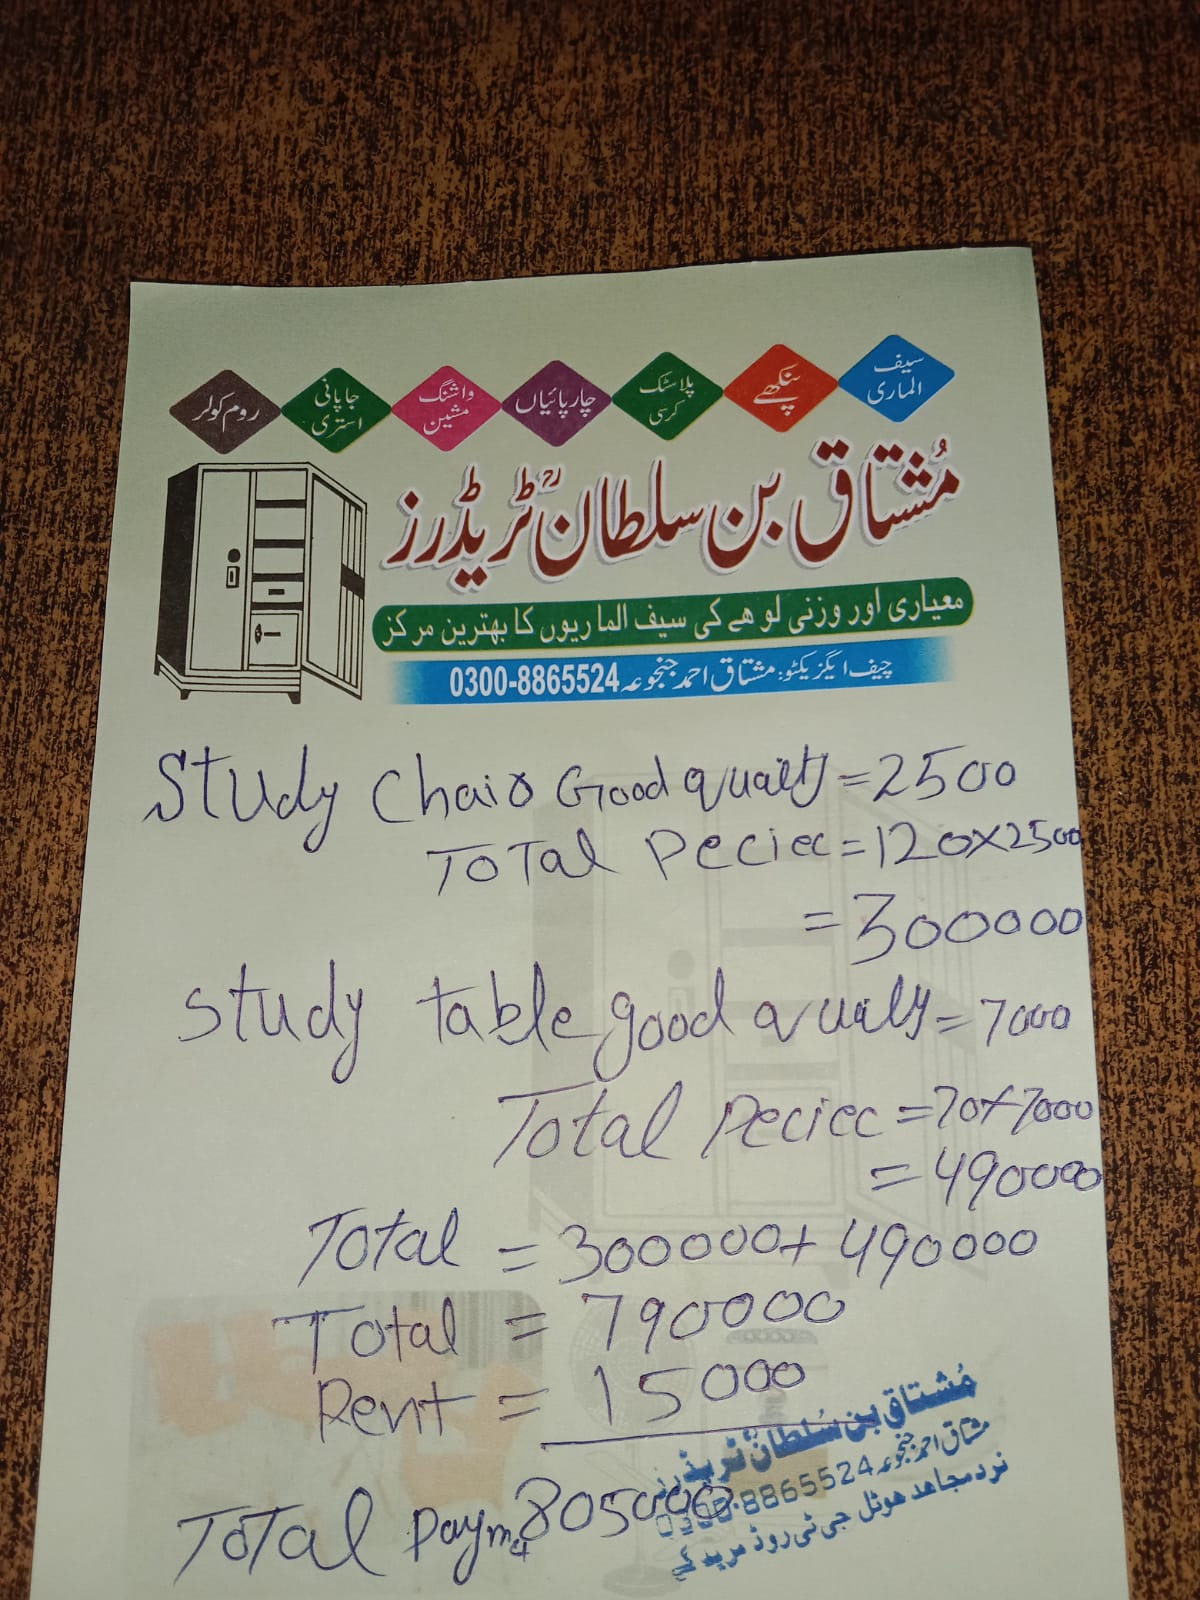 سیف الماری
پنکھے
پلاسٹک کرسی
چارپائیاں
واشنگ مشین
جاپانی استری
روم کولر
مُشتاق بن سلطانؒ ٹریڈرز
معیاری اور وزنی لوھے کی سیف الماریوں کا بھترین مرکز
چیف ایگزیکٹو: مشتاق احمد جنجوعہ 0300-8865524
Study Chair Good quailty = 2500
ToTal Peciec = 120x2500
= 300000
study table good qualy = 7000
Total Peciec = 70x7000
= 490000
Total = 300000+ 490000
Total = 790000
Rent = 15000
ToTal Paym 805000
مُشتاق بن سُلطانؒ ٹریڈرز
مشتاق احمد جنجوعہ 0300-8865524
نزد مجاھد ھوٹل جی ٹی روڈ مریدکے